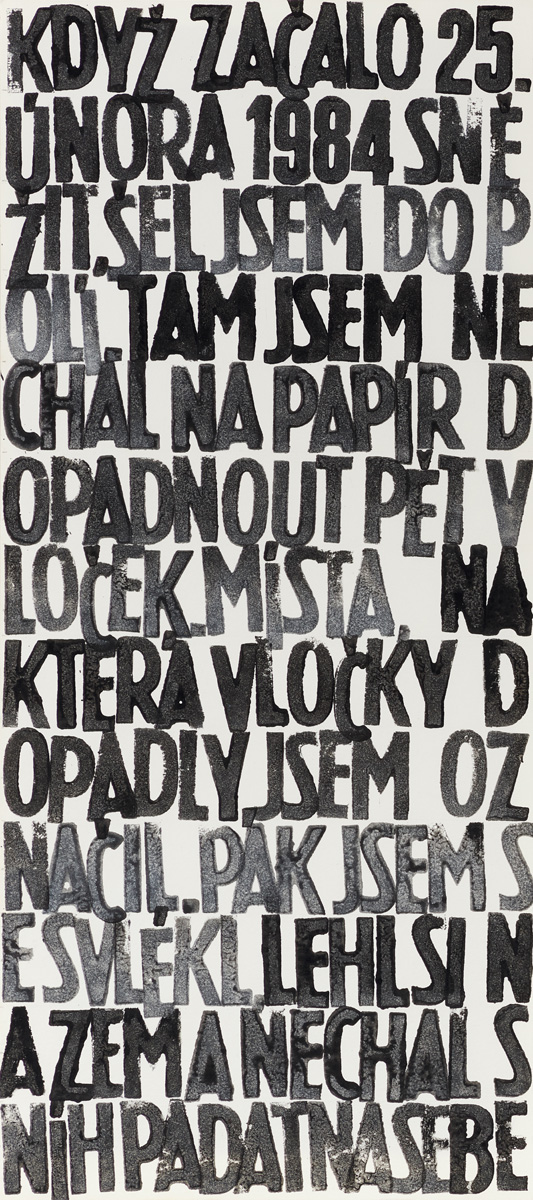 KDYŽ ZAČALO 25.
ÚNORA 1984 SNĚ
ŽIT, ŠEL JSEM DO P
OLÍ. TAM JSEM NE
CHAL NA PAPÍR D
OPADNOUT PĚT V
LOČEK. MÍSTA, NA
KTERÁ VLOČKY D
OPADLY, JSEM OZ
NAČIL. PAK JSEM S
E SVLÉKL, LEHL SI N
A ZEM A NECHAL S
NÍH PADAT NA SEBE